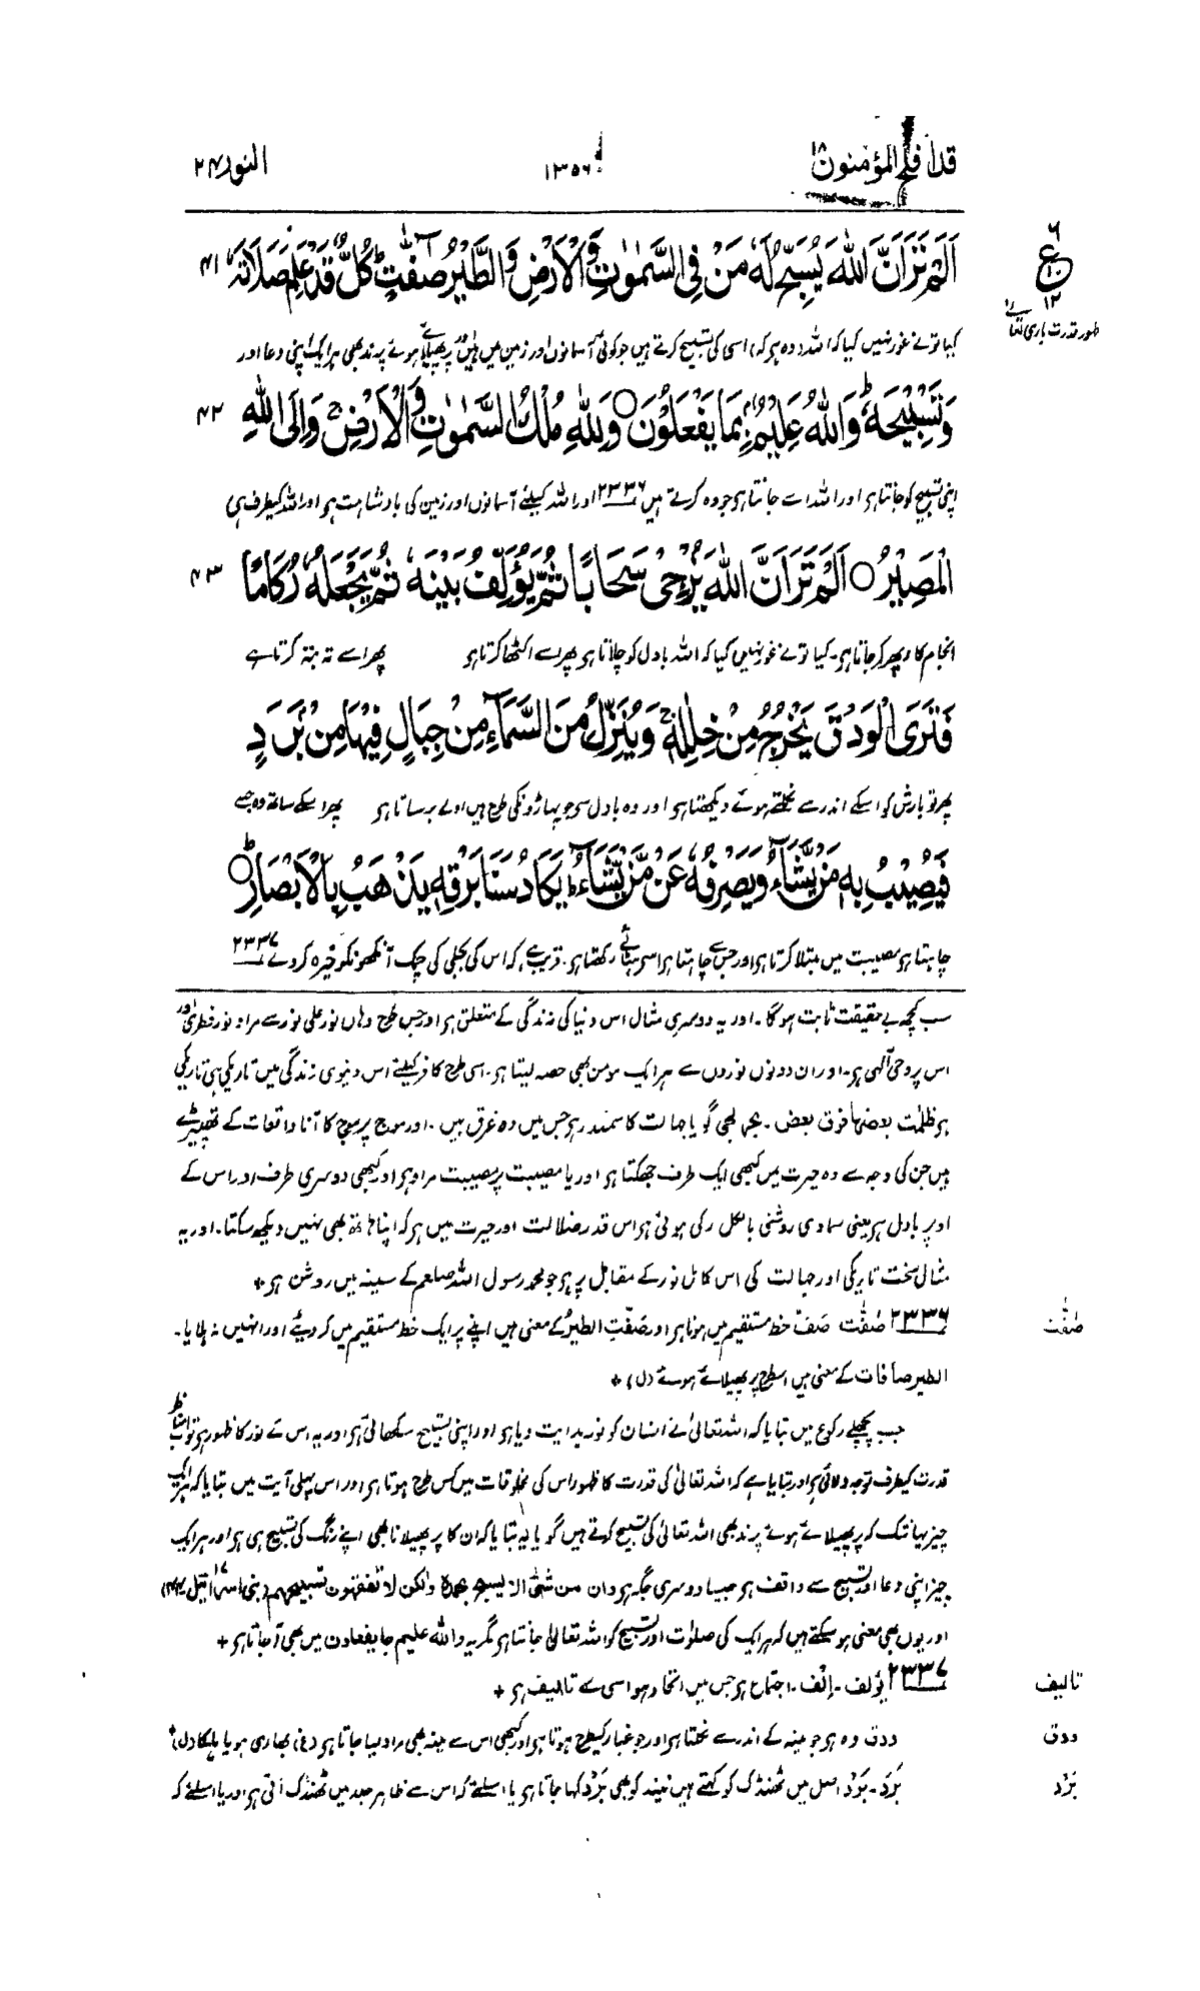 قد افلح المؤمنون ۱۸
۱۳۵۶
النور ۲۴
۶
ع
۱۰
۱۲
ظهور قدرت باری تعالےٰ
اَلَمْ تَرَ اَنَّ اللّٰهَ يُسَبِّحُ لَهٗ مَنْ فِى السَّمٰوٰتِ وَالْاَرْضِ وَالطَّيْرُ صٰٓفّٰتٍ ؕ كُلٌّ قَدْ عَلِمَ صَلَاتَهٗ ۴۱
کیا تو نے غور نہیں کیا کہ اللہ (وہ ہے کہ) اسی کی تسبیح کرتے ہیں جو کوئی آسمانوں اور زمین میں ہیں اور پر پھیلائے ہوئے پرند بھی ہر ایک اپنی دعا اور
وَتَسْبِيْحَهٗ ؕ وَاللّٰهُ عَلِيْمٌۢ بِمَا يَفْعَلُوْنَ ○ وَلِلّٰهِ مُلْكُ السَّمٰوٰتِ وَالْاَرْضِ ۚ وَاِلَى اللّٰهِ ۴۲
اپنی تسبیح کو جانتا ہو اور اللہ اسے جانتا ہو جو وہ کرتے ہیں ۲۳۳۶ اور اللہ کیلئے آسمانوں اور زمین کی بادشاہت ہو اور اللہ کیطرف ہی
الْمَصِيْرُ ○ اَلَمْ تَرَ اَنَّ اللّٰهَ يُزْجِىْ سَحَابًا ثُمَّ يُؤَلِّفُ بَيْنَهٗ ثُمَّ يَجْعَلُهٗ رُكَامًا ۴۳
انجام کار پھر کر جانا ہو۔ کیا تو نے غور نہیں کیا کہ اللہ بادل کو چلاتا ہو پھر اسے اکٹھا کرتا ہو پھر اسے تہ بتہ کرتا ہے
فَتَرَى الْوَدْقَ يَخْرُجُ مِنْ خِلٰلِهٖ ۚ وَيُنَزِّلُ مِنَ السَّمَآءِ مِنْ جِبَالٍ فِيْهَا مِنْۢ بَرَدٍ
پھر تو بارش کو اسکے اندر سے نکلتے ہوئے دیکھتا ہو اور وہ بادل سے جو پہاڑونکی طرح ہیں اولے برساتا ہو پھر اسکے ساتھ وہ جسے
فَيُصِيْبُ بِهٖ مَنْ يَّشَآءُ وَيَصْرِفُهٗ عَنْ مَّنْ يَّشَآءُ ؕ يَكَادُ سَنَا بَرْقِهٖ يَذْهَبُ بِالْاَبْصَارِ ؕ ○
چاہتا ہو مصیبت میں مبتلا کرتا ہو اور جس سے چاہتا ہو اسے ہٹائے رکھتا ہو۔ قریب ہے کہ اس کی بجلی کی چمک آنکھونکو خیرہ کر دے ۲۳۳۷
سب کچھ بے حقیقت ثابت ہو گا۔ اور یہ دوسری مثال اس دنیا کی زندگی کے متعلق ہو اور جس طرح وہاں نور علی نور سے مراد نور فطری اور
اس پر وحی الٰہی ہو۔ اور ان دونوں نوروں سے ہر ایک مومن بھی حصہ لیتا ہو۔ اسی طرح کافر کیلئے اس دنیوی زندگی میں تاریکی ہی تاریکی
ہو ظلمت بعضها فوق بعض۔ بحر لجی گویا جہالت کا سمندر ہو جس میں وہ غرق ہیں۔ اور موج پر موج کا آنا واقعات کے تھپیڑے
ہیں جن کی وجہ سے وہ حیرت میں کبھی ایک طرف جھکتا ہو اور یا مصیبت پر مصیبت مراد ہو اور کبھی دوسری طرف اور اس کے
اوپر بادل ہو یعنی سماوی روشنی بالکل رکی ہوئی ہو اس قدر ضلالت اور حیرت میں ہو کہ اپنا ہاتھ بھی نہیں دیکھ سکتا۔ اور یہ
مثال سخت تاریکی اور جہالت کی اس کامل نور کے مقابل پر ہو جو محمد رسول اللہ صلعم کے سینہ میں روشن ہو +
صٰفّٰت
۲۳۳۶ صٰفّٰت صَفّ خط مستقیم میں ہونا ہو اور صَفَّتِ الطیرُ کے معنی ہیں اپنے پر ایک خط مستقیم میں کر دیئے اور انہیں نہ ہلایا۔
الطیر صافات کے معنی ہیں اسطرح پر پھیلائے ہوئے (ل) +
جب پچھلے رکوع میں بتایا کہ اللہ تعالیٰ نے انسان کو نور ہدایت دیا ہو اور اپنی تسبیح سکھائی ہو اور یہ اس کے نور کا ظہور ہو تو اب
قدرت کیطرف توجہ دلائی ہو اور بتایا ہے کہ اللہ تعالیٰ کی قدرت کا ظہور اس کی مخلوقات میں کس طرح ہوتا ہو اور اس پہلی آیت میں بتایا کہ ہر ایک
چیز یہانتک کہ پر پھیلائے ہوئے پرند بھی اللہ تعالیٰ کی تسبیح کرتے ہیں گویا یہ بتایا کہ ان کا پر پھیلانا بھی اپنے رنگ کی تسبیح ہی ہو اور ہر ایک
چیز اپنی دعا اور تسبیح سے واقف ہو جیسا دوسری جگہ ہو وان من شئ الا یسبح بحمدہ ولکن لا تفقهون تسبیحهم (بنی اسرائیل ۴۴)
اور یوں بھی معنی ہو سکتے ہیں کہ ہر ایک کی صلوٰت اور تسبیح کو اللہ تعالیٰ جانتا ہو مگر یہ واللہ علیم بما یفعلون میں بھی آ جاتا ہو +
تالیف
۲۳۳۷ یؤلف۔ اِلْف۔ اجتماع ہو جس میں اتحاد ہو اسی سے تالیف ہو +
ودق
ودق وہ ہو جو مینہ کے اندر سے نکلتا ہو اور جو غبار کیطرح ہوتا ہو اور کبھی اس سے مینہ بھی مراد لیا جاتا ہو (غ) بھاری ہو یا ہلکا (ل) +
بَرَد
بَرَد۔ بَرْد اصل میں ٹھنڈک کو کہتے ہیں نیند کو بھی بَرْد کہا جاتا ہو یا اسلئے کہ اس سے ظاہر جلد میں ٹھنڈک آتی ہو اور یا اسلئے کہ